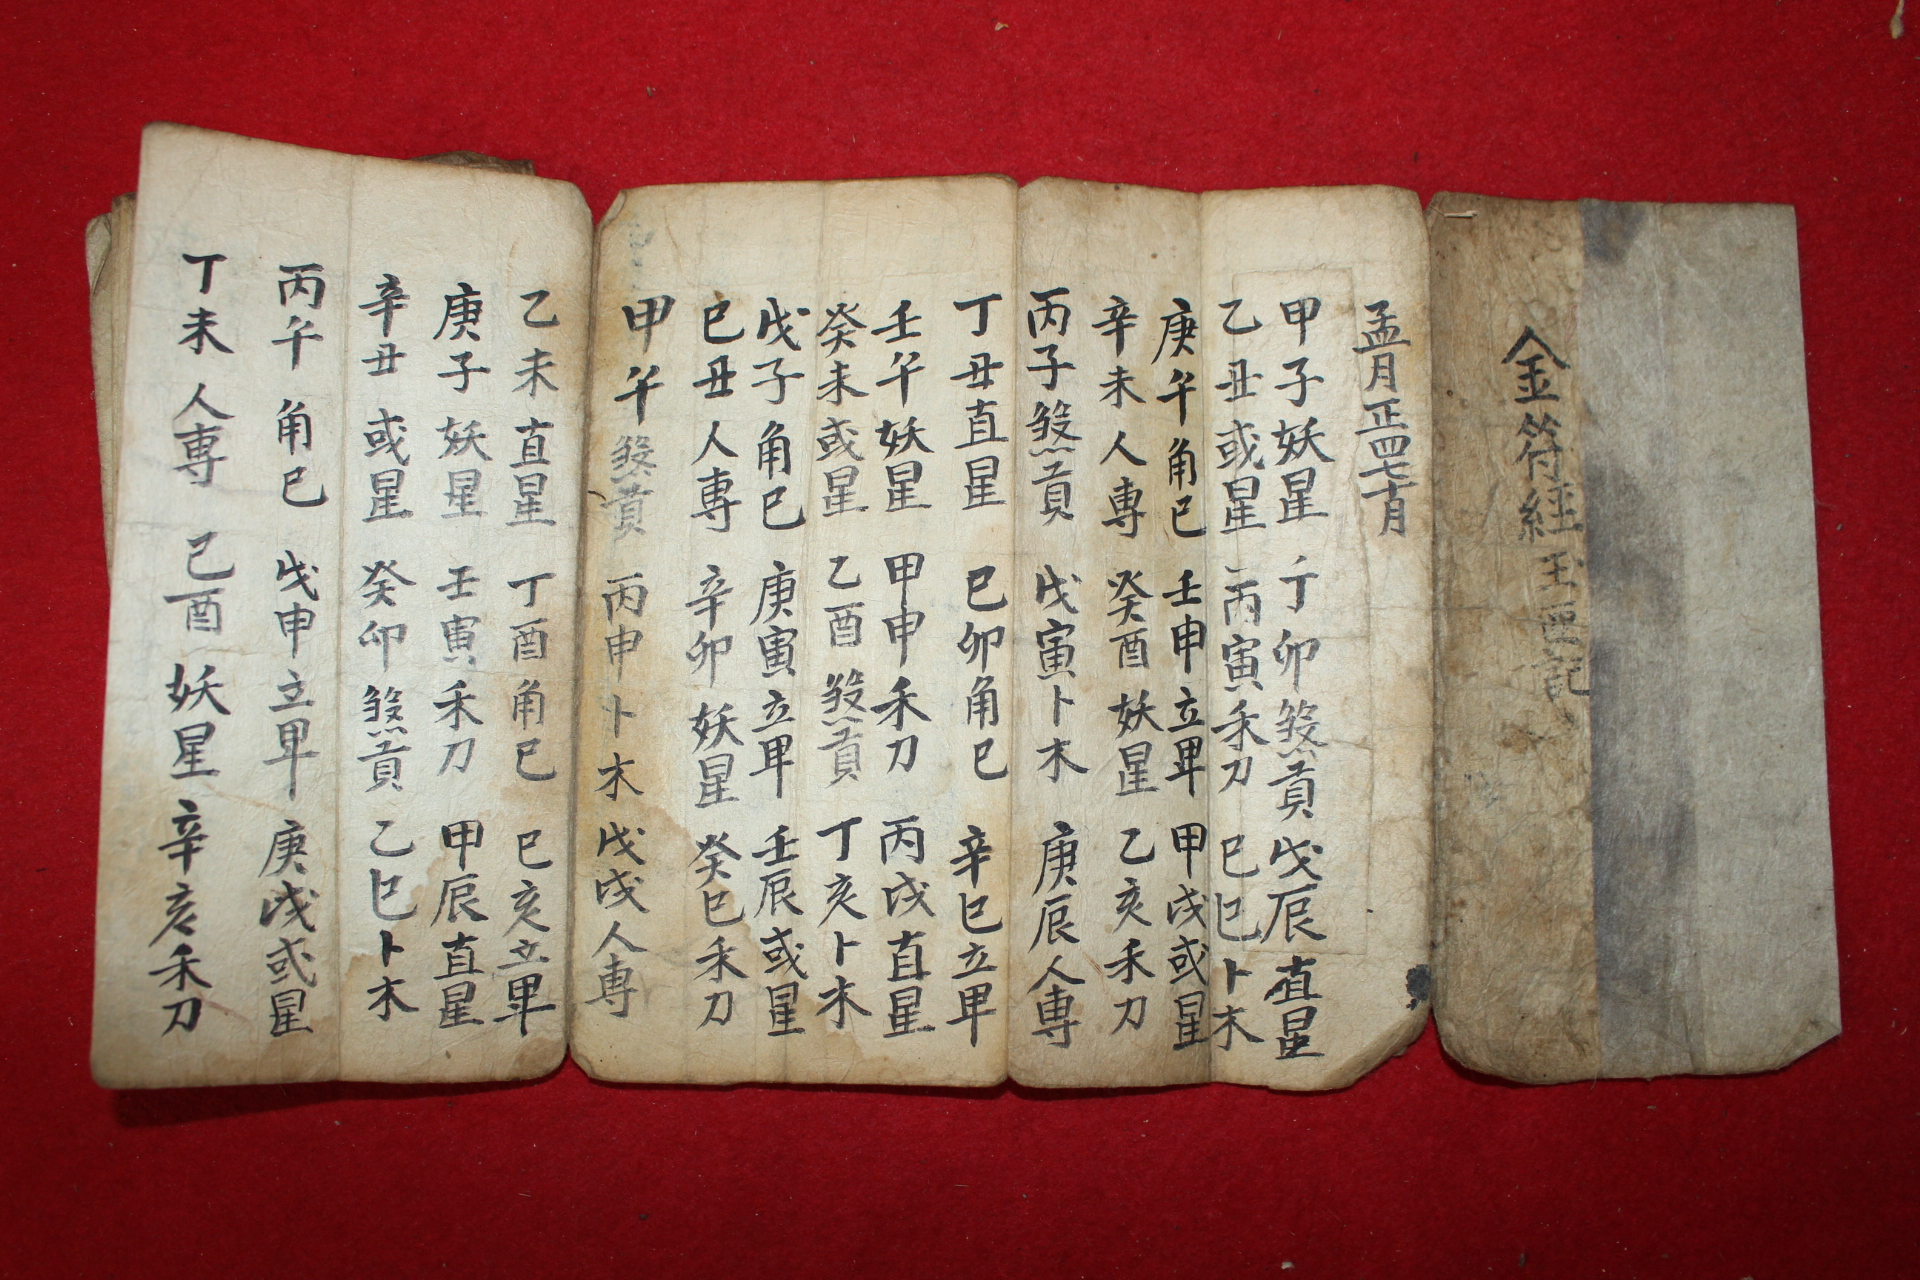 金符經玉匣記
孟月正四七十月
甲子妖星 丁卯煞貢 戊辰直星
乙丑或星 丙寅禾刀 巳巳卜木
庚午角巳 壬申立早 甲戌或星
辛未人專 癸酉妖星 乙亥禾刀
丙子煞貢 戊寅卜木 庚辰人專
丁丑直星 巳卯角巳 辛巳立早
壬午妖星 甲申禾刀 丙戌直星
癸未或星 乙酉煞貢 丁亥卜木
戊子角巳 庚寅立早 壬辰或星
巳丑人專 辛卯妖星 癸巳禾刀
甲午煞貢 丙申卜木 戊戌人專
乙未直星 丁酉角巳 巳亥立早
庚子妖星 壬寅禾刀 甲辰直星
辛丑或星 癸卯煞貢 乙巳卜木
丙午角巳 戊申立早 庚戌或星
丁未人專 己酉妖星 辛亥禾刀